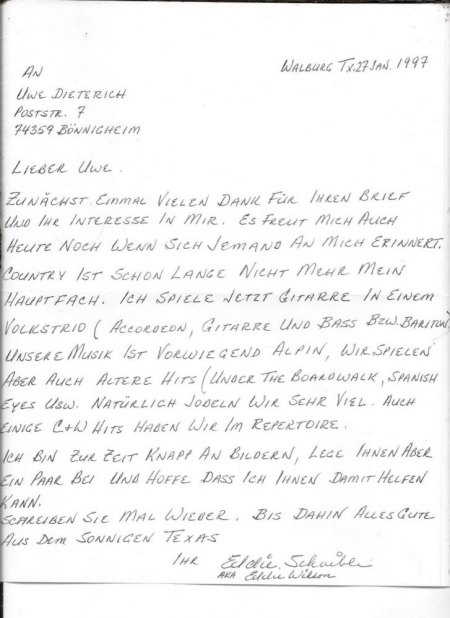 WALBURG TX. 27 JAN. 1997
AN
UWE DIETERICH
POSTSTR. 7
74359 BÖNNIGHEIM
LIEBER UWE.
ZUNÄCHST EINMAL VIELEN DANK FÜR IHREN BRIEF
UND IHR INTERESSE IN MIR. ES FREUT MICH AUCH
HEUTE NOCH WENN SICH JEMAND AN MICH ERINNERT.
COUNTRY IST SCHON LANGE NICHT MEHR MEIN
HAUPTFACH. ICH SPIELE JETZT GITARRE IN EINEM
VOLKSTRIO (ACCORDEON, GITARRE UND BASS BZW. BARITON)
UNSERE MUSIK IST VORWIEGEND ALPIN, WIR SPIELEN
ABER AUCH ALTERE HITS (UNDER THE BOARDWALK, SPANISH
EYES USW. NATÜRLICH JODELN WIR SEHR VIEL. AUCH
EINIGE C+W HITS HABEN WIR IM REPERTOIRE.
ICH BIN ZUR ZEIT KNAPP AN BILDERN, LEGE IHNEN ABER
EIN PAAR BEI UND HOFFE DASS ICH IHNEN DAMIT HELFEN
KANN.
SCHREIBEN SIE MAL WIEDER. BIS DAHIN ALLES GUTE
AUS DEM SONNIGEN TEXAS
IHR Eddie
AKA Eddie Wilson